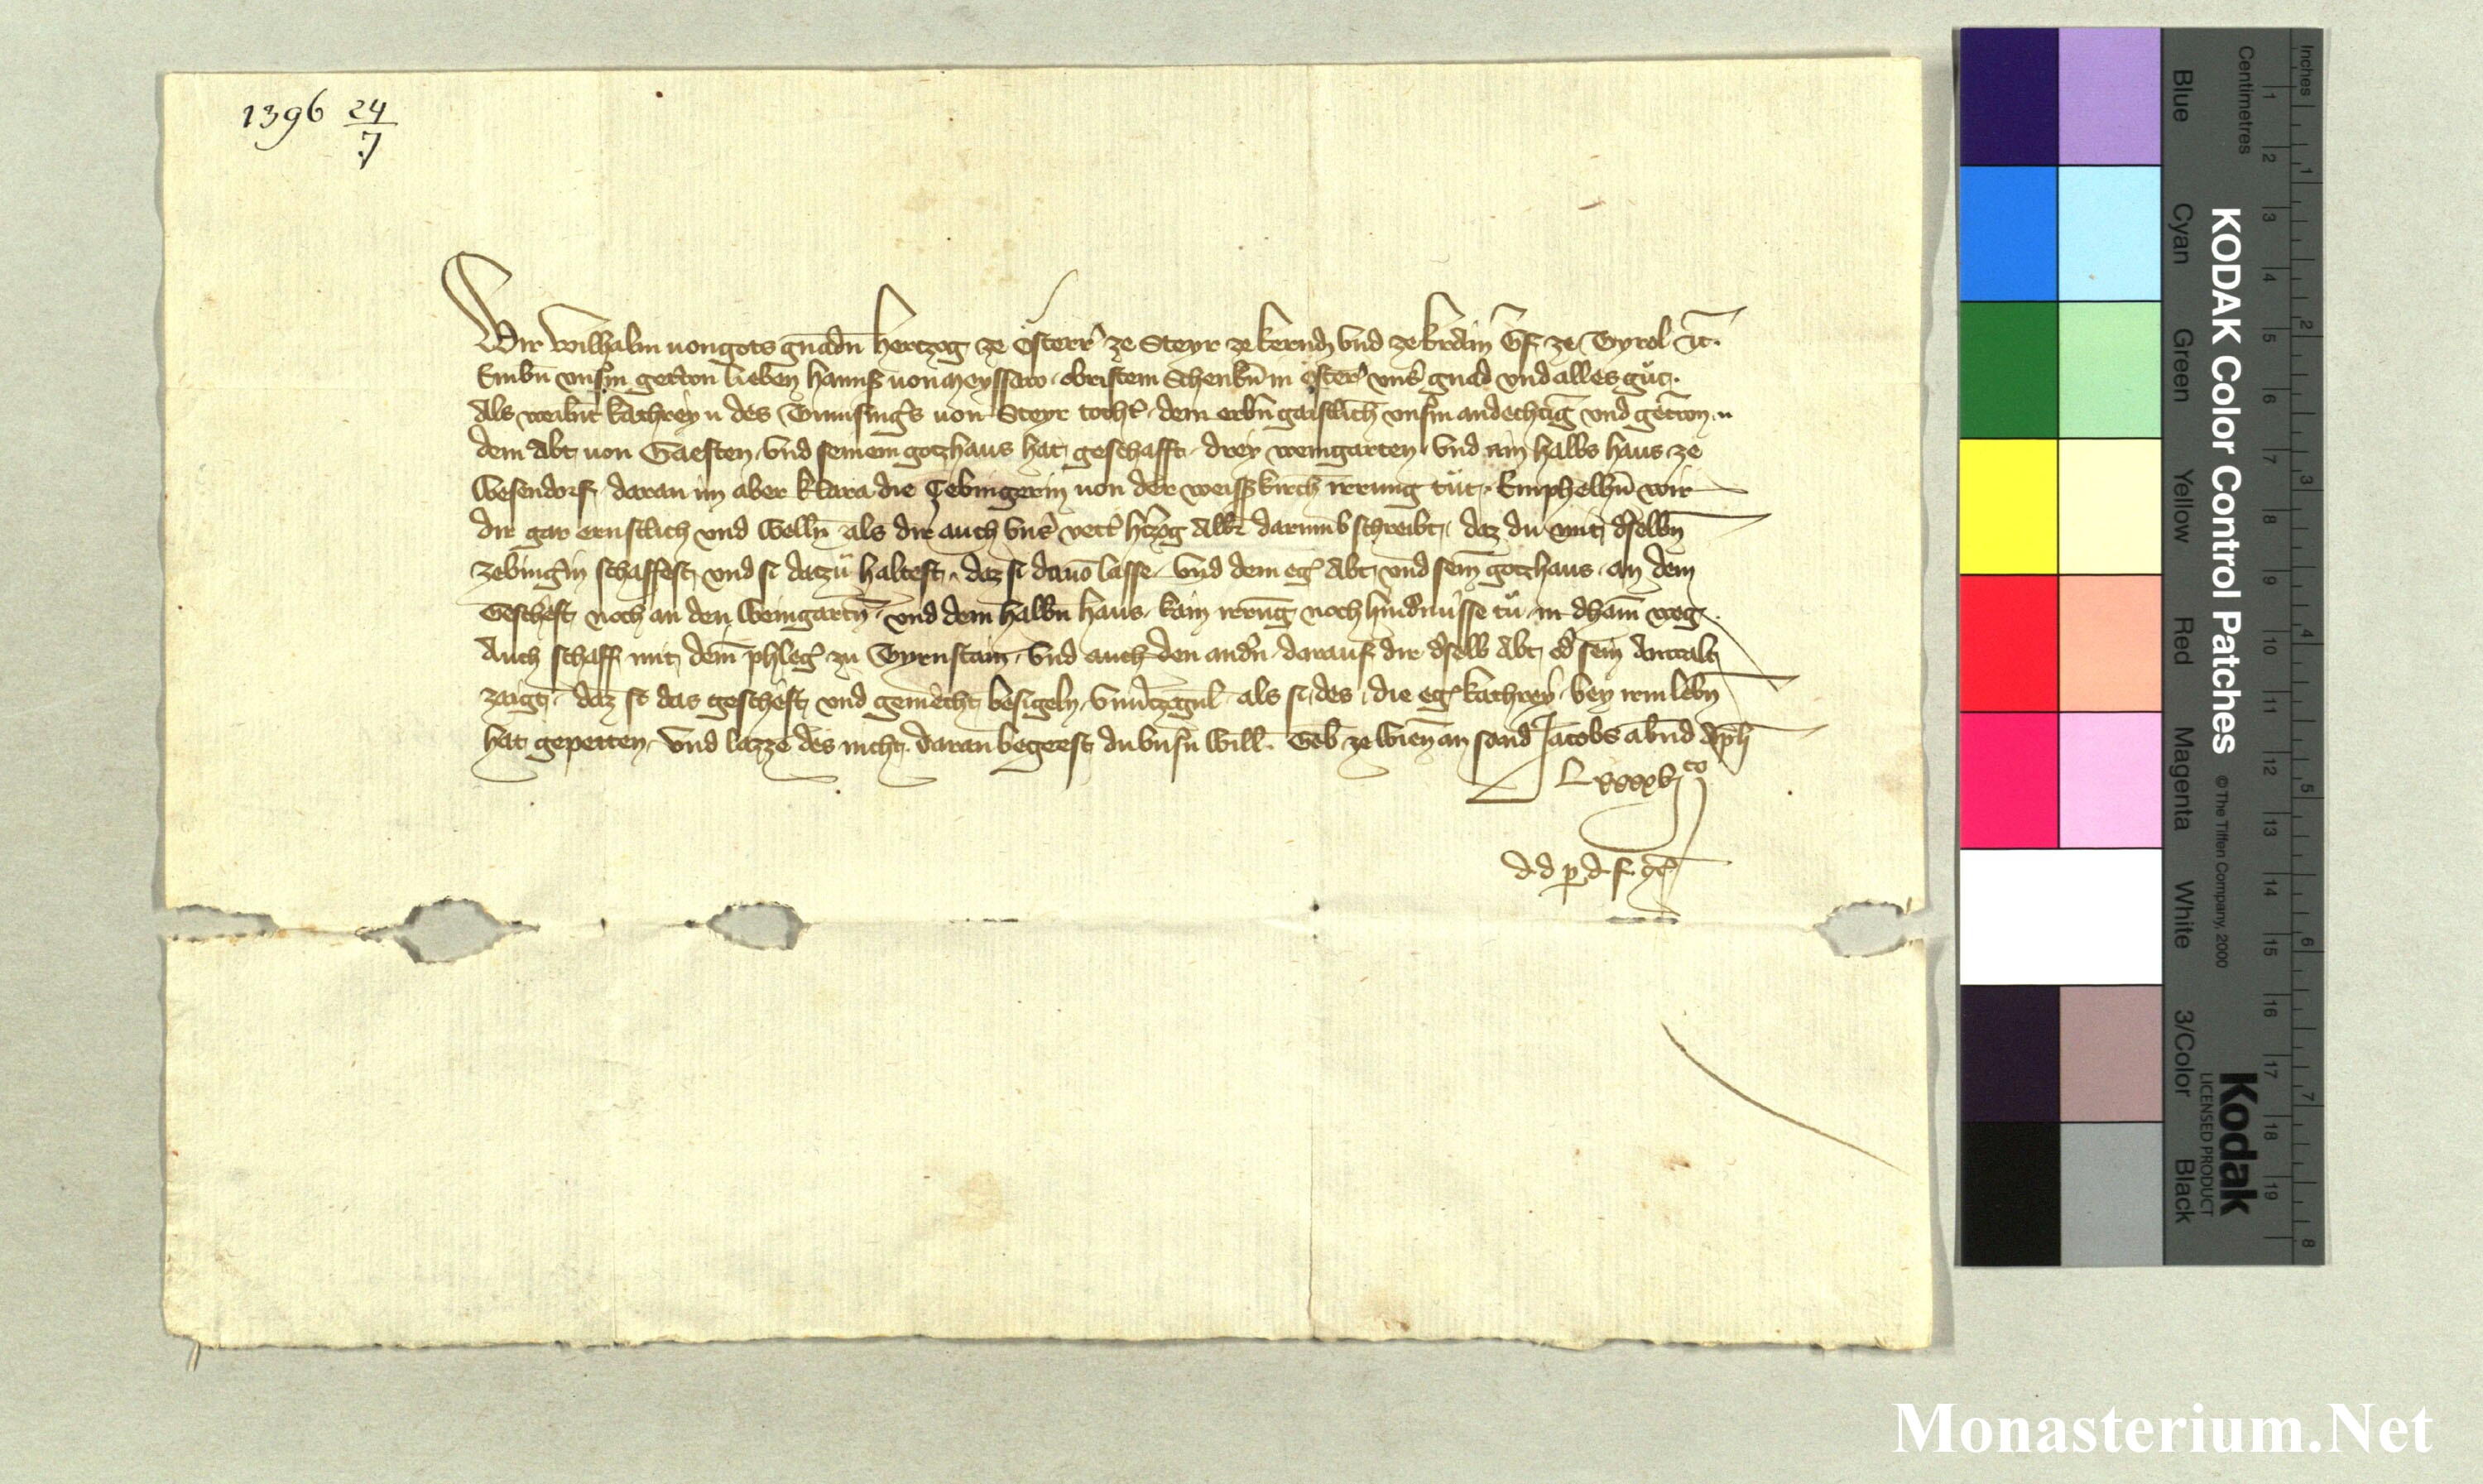 1396 24/7
Wir Wilhalm von gots gnadn Hertzog ze Osterr ze Steyr ze kernden vnd ze krain Gf ze Tyrol etc.
Embn vnserm getrewn lieben Hannsen von Meyssaw obristem Schenkn in Osterr vnser gnad vnd alles gut.
Als weilnt kathrey des Tumsingers von Steyr tochter dem erbn gaistlich vnserm andechtig vnd getrewn n.
dem Abt von Gaersten vnd seinem gotzhaus hat geschafft drey weingarten vnd ain halbs haus ze
Wesendorf daran im aber klara die Zebingerin von der weisskirch irrung tut. Emphelhn wir
dir gar ernstlich vnd welln als dir auch vnser vetter hertzog Albr darumb schreibt daz du mit derselbn
zebingerin schaffest vnd si datzu haltest daz si dauon lasse vnd dem eg Abt vnd seim gotzhaus an dem
Geschefft noch an den weingartn vnd dem halbn haus kain irrung noch hindnusse tu in dhain weg.
Auch schaff mit dem phleger zu Tyrnstain vnd auch den andern darauf dir derselb Abt oder sein Anwalt
zaigt daz si das geschefft vnd gemecht besigeln als si des die eg kathrey bey irm lebn
hat gepetten vnd lazze des nicht daran begeest du vnsern will. Geb ze Wienn an sand Jacobs abnd Apli
Lxxxxvjto
d d p d f
Inches
Centimetres
1 2 3 4 5 6 7 8 9 10 11 12 13 14 15 16 17 18 19
1 2 3 4 5 6 7 8
Blue Cyan Green Yellow Red Magenta White 3/Color Black
KODAK Color Control Patches © The Tiffen Company, 2000
Kodak
LICENSED PRODUCT
Monasterium.Net